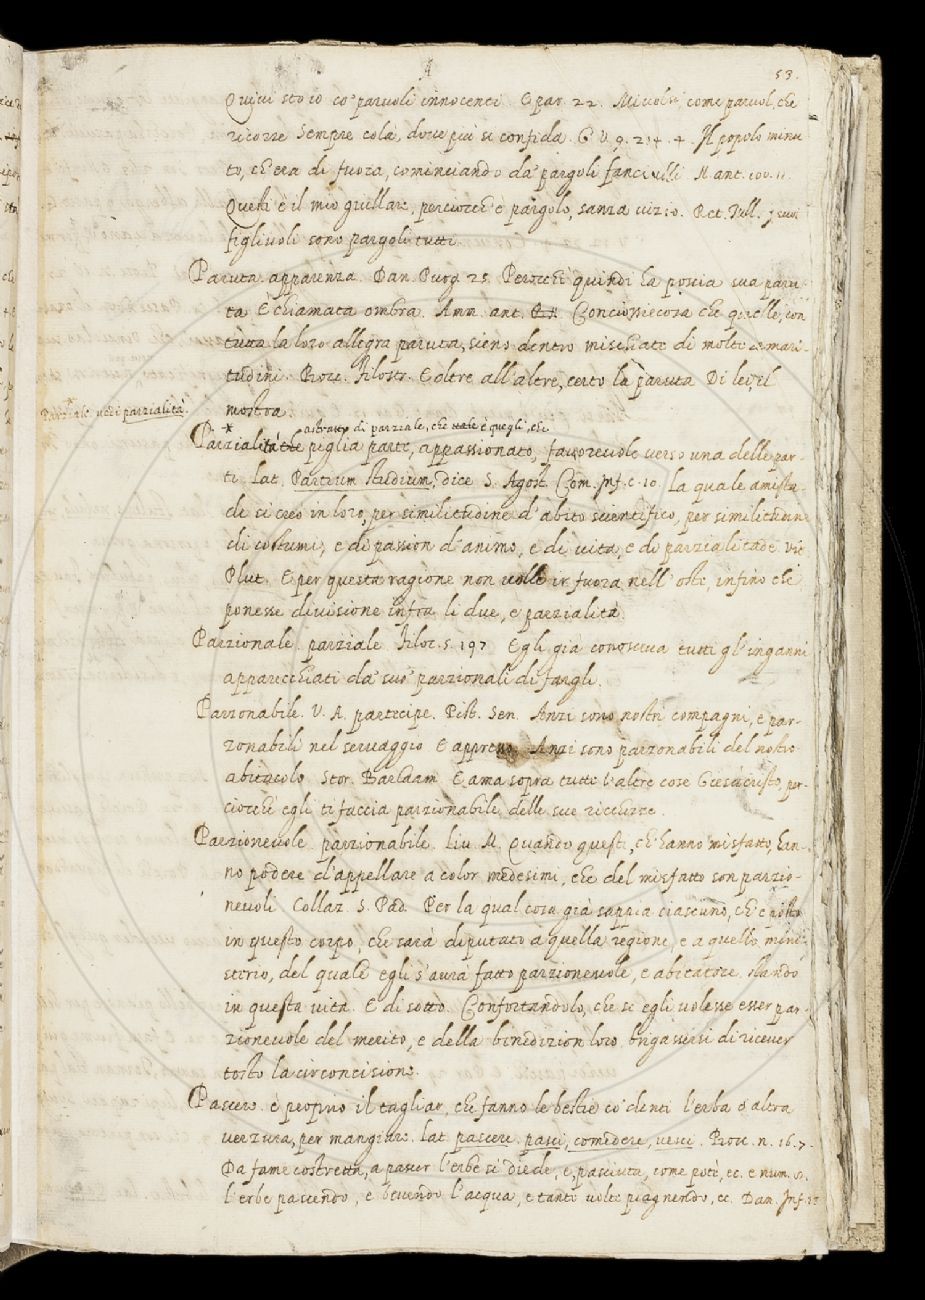 53.
Quivi sto io co' parvoli innocenti. E par. 22. Mi volsi come parvol, che
ricorre sempre colà, dove più si confida. G. V. 9. 214. 4. Il popolo minu
to, ch'era di fuora, cominciando da' pargoli fanciulli. M. ant.
Questi è il mio giullare, perciocch' è pargolo, sanza vizio. Ret. Tull. I suoi
figliuoli sono pargoli tutti.
Paruta. apparenza. Dan. Purg. 25. Perocchè quindi ha poscia sua paru-
ta E chiamata ombra. Amm. ant. Conciossiecosa che quelle, con
tutta la loro allegra paruta, sieno dentro mischiate di molte amari-
tudini. Bocc. Filostr. E oltre all'altre, certo la paruta Di lei, il
mostra.
Parziale vedi parzialità.
astratto di parziale, che vale è quegli, che
Parzialità che piglia parte, appassionato, favorevole verso una delle par-
ti. Lat. Partium studium, dice S. Agost. Com. Inf. c. 10. La quale amistà
di si creò in loro, per similitudine d'abito scientifico, per similitudine
di costumi, e di passion d'animo, e di vita, e di parzialitade. Vit.
Plut. E per questa ragione non volle ir fuora nell'oste, infino che
ponesse divisione infra li due, e parzialità.
Parzionale. parziale. Filoc. 5. 197. Egli già conosceva tutti gl'inganni
apparecchiati da' suo' parzionali di fargli.
Parzonabile. V. A. partecipe. Pist. Sen. Anzi sono nostri compagni, e par-
zonabili nel servaggio. E appresso. Anzi sono parzonabili del nostro
abitacolo. Stor. Barlaam. E ama sopra tutte l'altre cose Giesù cristo, per-
ciocchè egli ti faccia parzionabile delle sue ricchezze.
Parzionevole. parzionabile. Liv. M. Quando questi, ch'hanno misfatto, han-
no podere d'appellare a color medesimi, che del misfatto son parzio-
nevoli. Collaz. S. Pad. Per la qual cosa già sappia ciascuno, ch'è posto
in questo corpo, che sarà diputato a quella regione, e a quello mini-
sterio, del quale egli s'avrà fatto parzionevole, e abitatore stando
in questa vita. E di sotto. Confortandolo, che se egli volesse esser par-
zionevole del merito, e della binedizion loro brigassersi di ricever
tosto la circoncisione.
Pascere. è proprio il tagliar, che fanno le bestie co' denti l'erba o altra
verzura, per mangiare. lat. pascere. pasci, comedere, vesci. Bocc. n. 16. 7.
Da fame costretta, a pascer l'erbe si diede, e, pasciuta, come potè, ec. e num. 8.
l'erbe pascendo, e bevendo l'acqua, e tante volte piagnendo, ec. Dan. Inf.